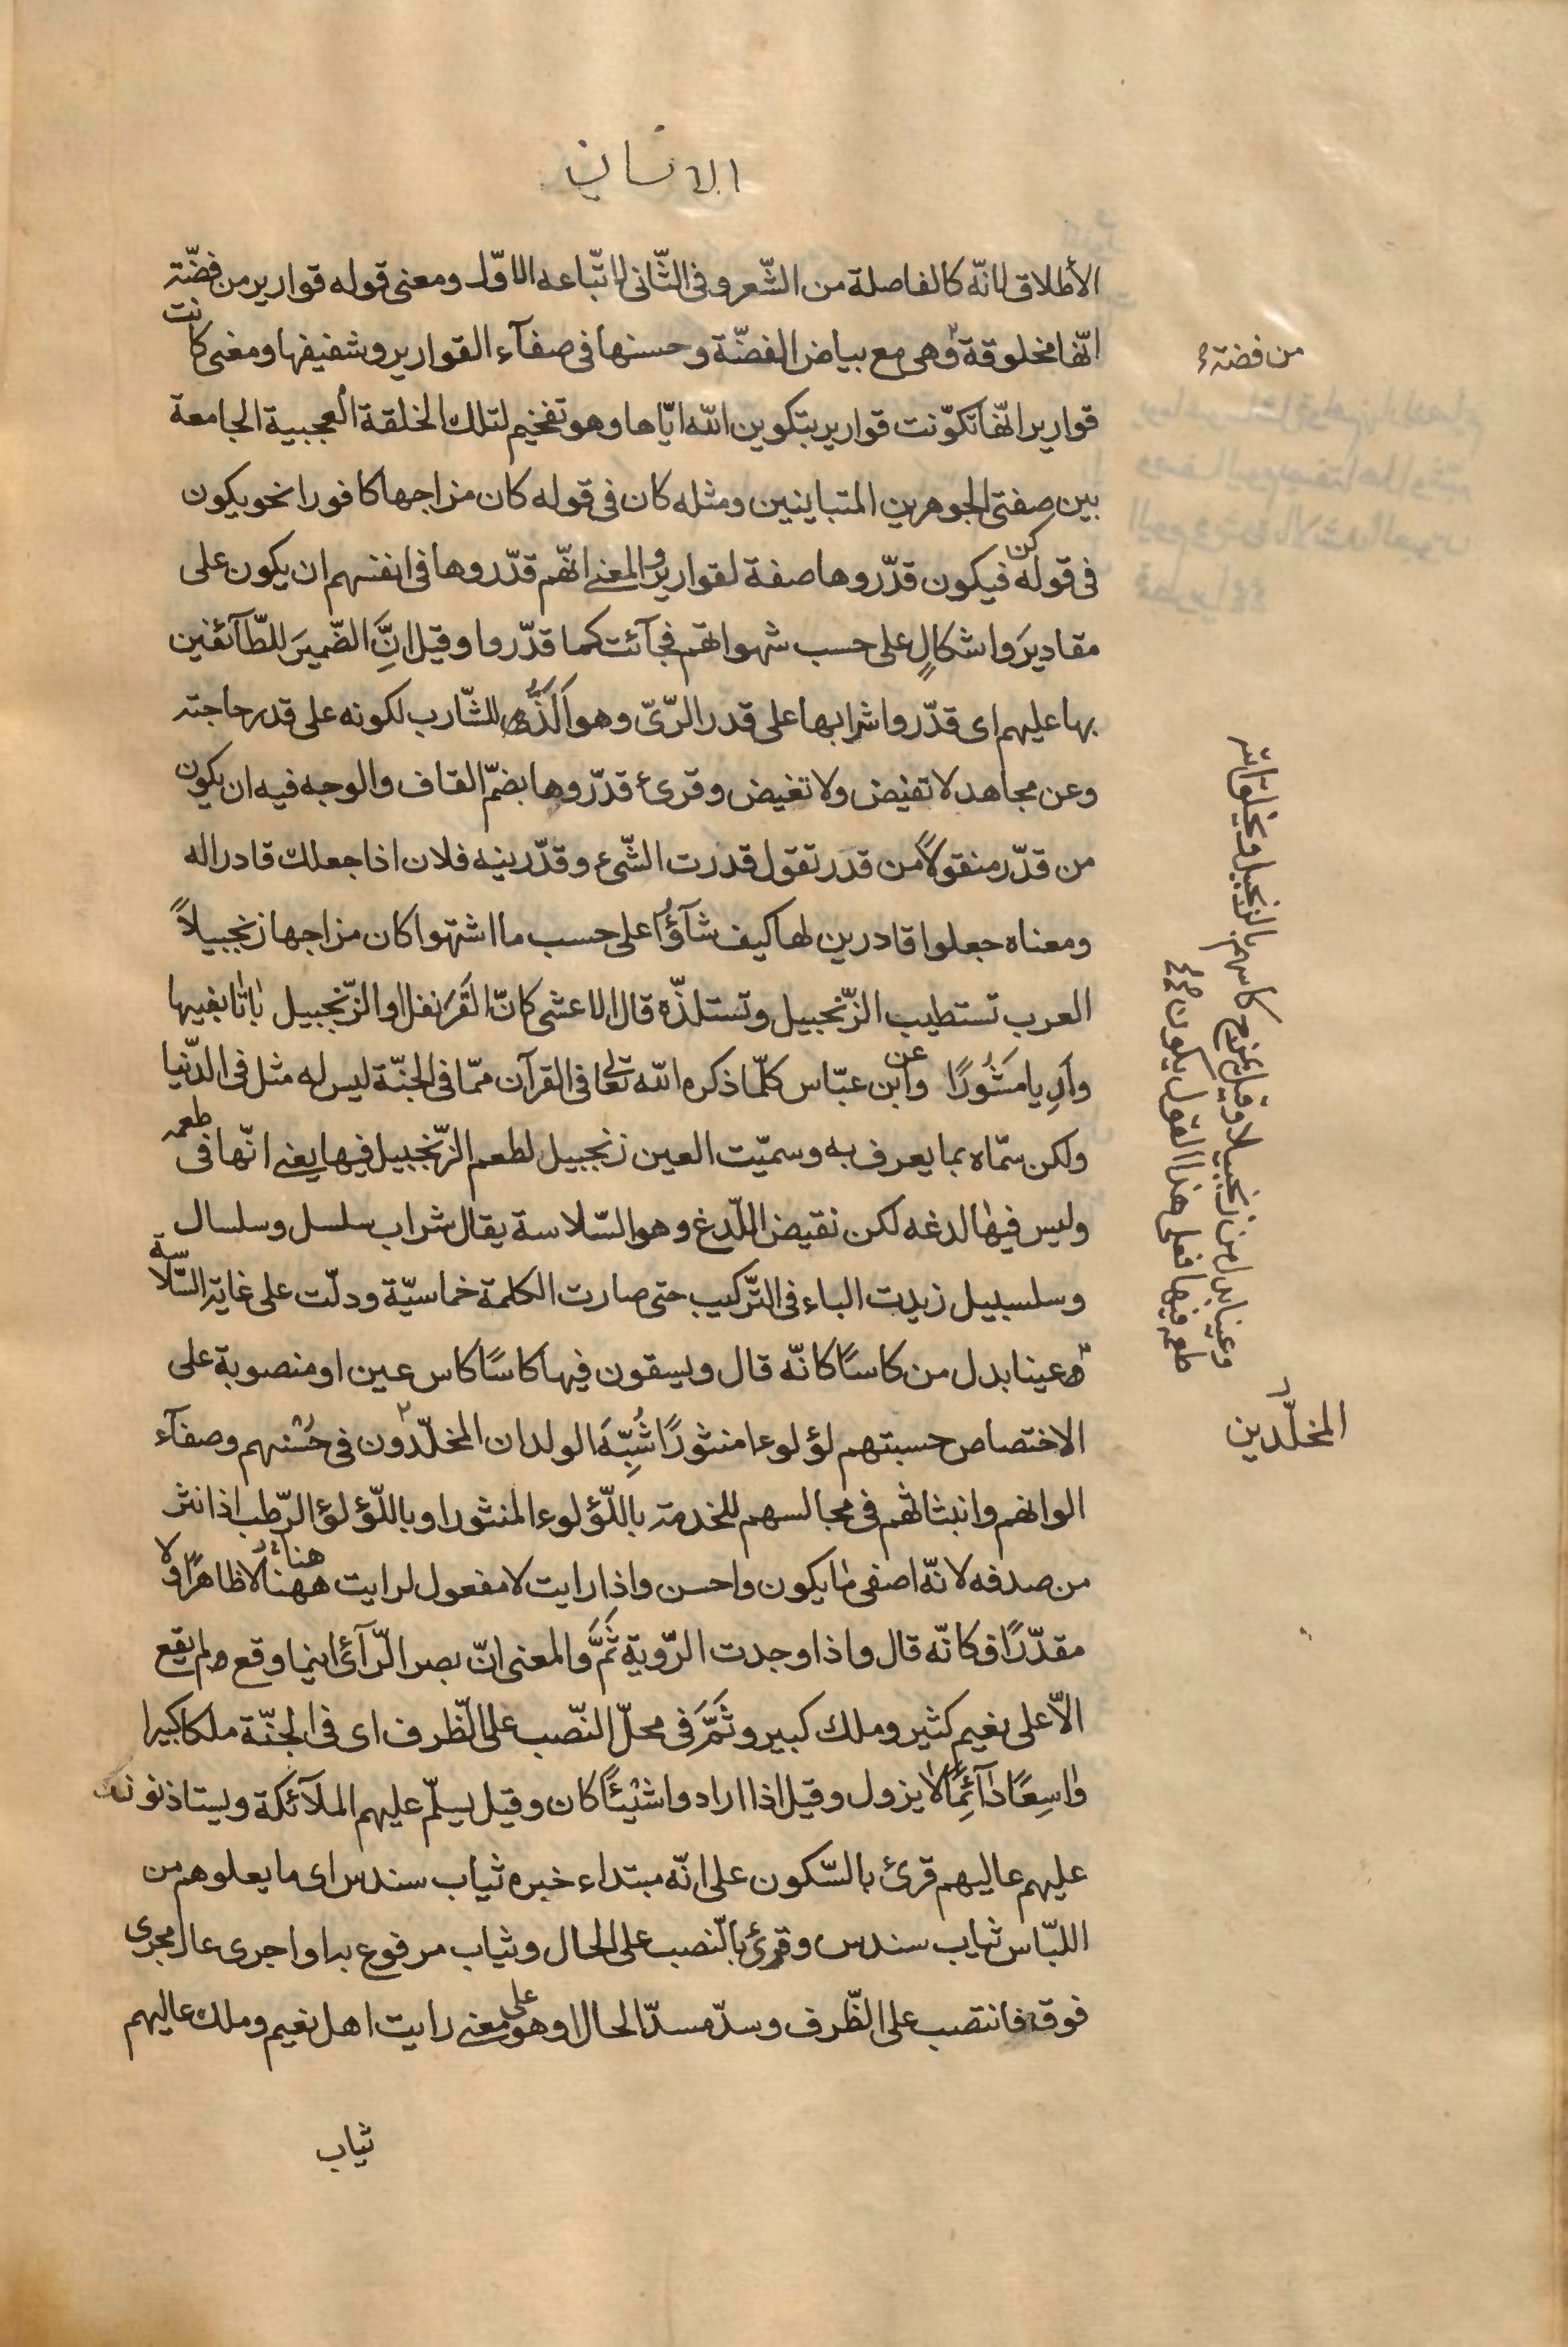 الانسان
الأطلاق لانّه كالفاصلة من الشّعر و فى الثّانى لاتّباعه الاوّل ومعنى قوله قوارير من فضّته
انّها مخلوقة وهى مع بياض الفضّة وحسنها فى صفآء القوارير وشفيفها ومعنى كانت
من فضته
قوارير انّها تكوّنت قوارير بتكوين الله ايّاها وهو تفخيم لتلك الخلقة العجيبية الجامعة
بين صفتى الجوهرين المتباينين ومثله كان فى قوله كان مزاجها كافورا نحو يكون
فى قوله كن فيكون قدّروها صفة لقوارير والمعنى انّهم قدّروها فى انفسهم ان يكون على
مقاديرَ واشكالٍ على حسب شهواتهم فجآئت كما قدّروا وقيل انَّ الضّميرَ للطّآئفين
بها عليهم اى قدّروا شرابها على قدر الرّىّ وهو اَلَذُّ للشّارب لكونه على قدر حاجته
وعن مجاهد لا تفيض ولا تغيض وقرئ قدّروها بضمّ القاف والوجه فيه ان يكون
من قدّر منقولاً من قدَر تقول قدرت الشّىء وقدّرينه فلان اذا جعلك قادرا له
ومعناه جعلوا قادرين لها كيف شآؤُا على حسب ما اشتهوا كان مزاجها زنجبيلاً
العرب تستطيب الزّنجبيل وتستلذّه قال الاعشى كانّ القَرَنفل والزّنجبيل باتا بفيها
وآرِيا مَشُورًا وعن ابن عبّاس كلّما ذكره الله تعالى فى القرآن ممّا فى الجنّة ليس له مثل فى الدّنيا
ولكن سمّاه بما يعرف به وسميّت العين زنجبيل لطعم الزّنجبيل فيها يعنى انّها فى طعمه
وليس فيها لدغه لكن نقيض اللّدغ وهو السّلاسة يقال شراب سلسل وسلسال
وسلسبيل زيدت الباء فى التّركيب حتى صارت الكلمة خماسيّة ودلّت على غاية السّلاسة
وعينا بدل من كاسًا كانّه قال ويسقون فيها كاسًا كاس عين او منصوبة على
الاختصاص حسبتهم لؤلوءا منثورًا شُبِّهَ الولدان المخلّدون فى حُسْنهم وصفآء
المخلّدين
الوانهم وانبثاثهم فى مجالسهم للخدمة باللّؤلوء المنثور او باللّؤلؤ الرّطب اذا نثر
من صدفه لانّه اصفى ما يكون واحسن واذا رايت لا مفعول لرايت ههنا لا ظاهرًا ولا
مقدّرًا فكانّه قال واذا وجدت الرّوية ثَمَّ والمعنى انّ بصر الرّآئى اينما وقع لم يقع
الاّ على نعيم كثير وملك كبير وثَمَّ فى محلّ النّصب على الظّرف اى فى الجنّة ملكا كبيرا
واسِعًا دآئِمًا لا يزول وقيل اذا ارادوا شيْئًا كان وقيل يسلّم عليهم الملآئكة ويستاذنونك
عليهم عاليهم قرئ بالسّكون على انّه مبتداء خبره ثياب سندس اى ما يعلوهم من
اللّباس ثياب سندس وقرئ بالنّصب على الحال وثياب مرفوع به او اجرى عال مجرى
فوق فانتصب على الظّرف وسدّ مسدّ الحال وهو على معنى رايت اهل نعيم وملك عاليهم
ثياب
وعينا بدل من زنجبيلا وقيل يمزج كاسهم بالزنجبيل
طعمه فيها فعلى هذا القول يكون